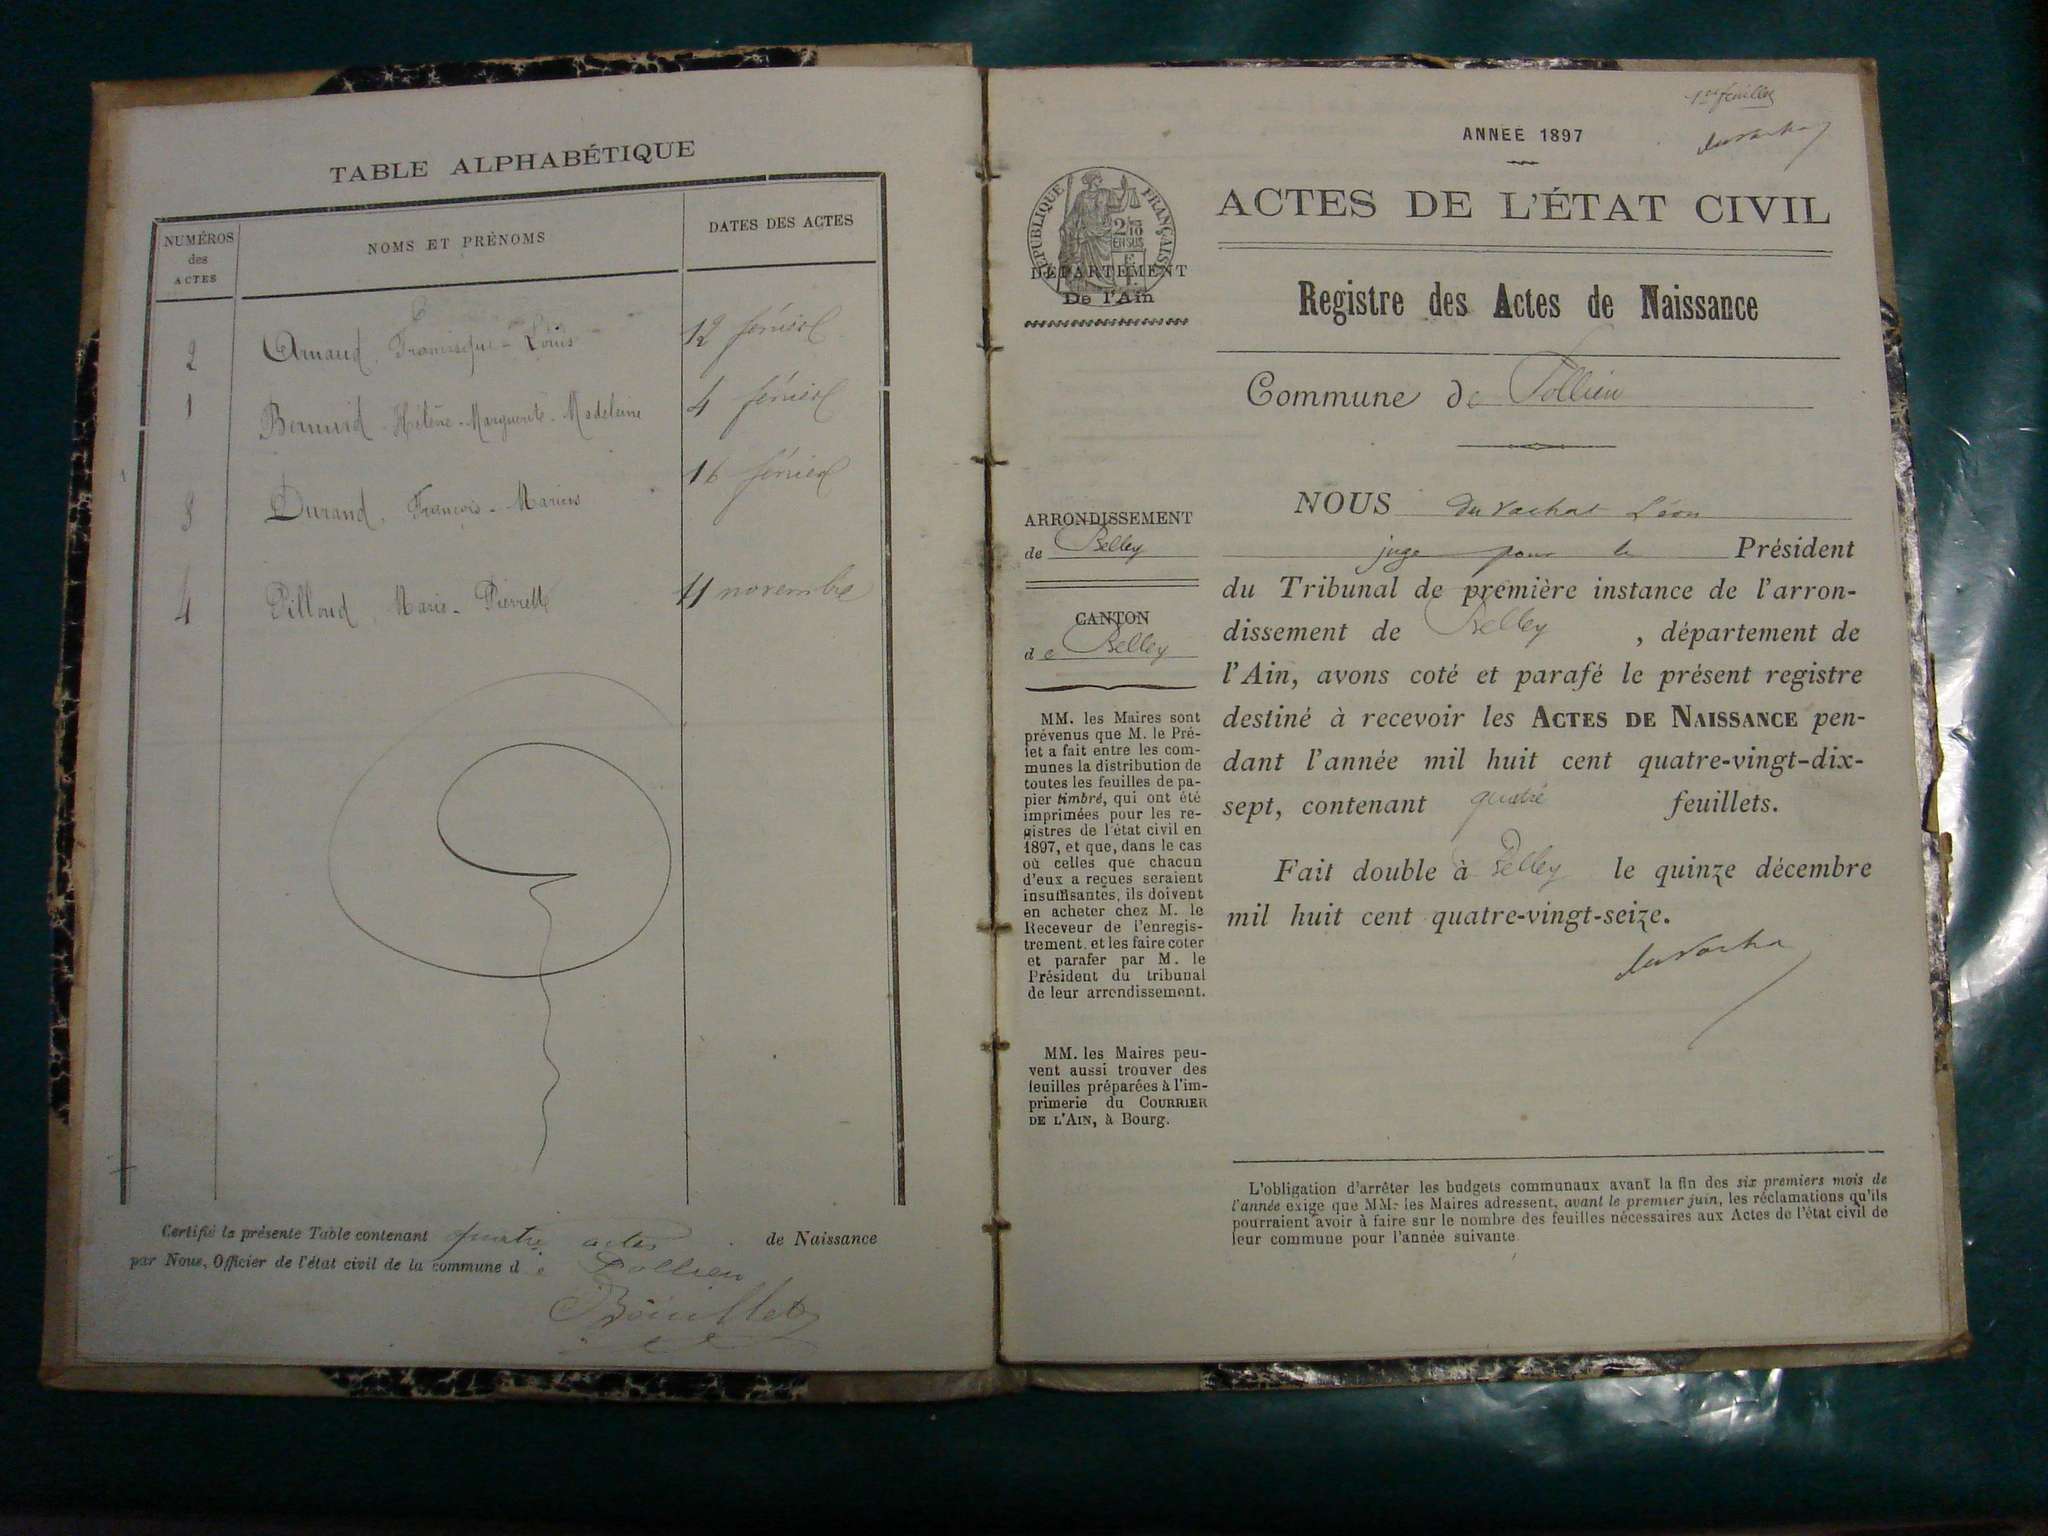 TABLE ALPHABÉTIQUE
NUMÉROS des ACTES
NOMS ET PRÉNOMS
DATES DES ACTES
2 Arnaud, Francisque-Louis 12 février
1 Hélène-Marguerite-Madeleine 4 février
3 Durand, François-Marius 16 février
4 Pilloud, Marie-Pierrette 11 novembre
Certifié la présente Table contenant quatre actes de Naissance
par Nous, Officier de l'état civil de la commune de Pollieu
1er feuillet
ANNÉE 1897
ACTES DE L'ÉTAT CIVIL
RÉPUBLIQUE FRANÇAISE
2/10
EN SUS
DÉPARTEMENT
De l'Ain
Registre des Actes de Naissance
Commune de Pollieu
ARRONDISSEMENT
de Belley
CANTON
de Belley
MM. les Maires sont
prévenus que M. le Pré-
fet a fait entre les com-
munes la distribution de
toutes les feuilles de pa-
pier timbré, qui ont été
imprimées pour les re-
gistres de l'état civil en
1897, et que, dans le cas
où celles que chacun
d'eux a reçues seraient
insuffisantes, ils doivent
en acheter chez M. le
Receveur de l'enregis-
trement, et les faire coter
et parafer par M. le
Président du tribunal
de leur arrondissement.
MM. les Maires peu-
vent aussi trouver des
feuilles préparées à l'im-
primerie du COURRIER
DE L'AIN, à Bourg.
NOUS du Vachat Léon
juge pour le Président
du Tribunal de première instance de l'arron-
dissement de Belley, département de
l'Ain, avons coté et parafé le présent registre
destiné à recevoir les ACTES DE NAISSANCE pen-
dant l'année mil huit cent quatre-vingt-dix-
sept, contenant quatre feuillets.
Fait double à Belley le quinze décembre
mil huit cent quatre-vingt-seize.
L'obligation d'arrêter les budgets communaux avant la fin des six premiers mois de
l'année exige que MM. les Maires adressent, avant le premier juin, les réclamations qu'ils
pourraient avoir à faire sur le nombre des feuilles nécessaires aux Actes de l'état civil de
leur commune pour l'année suivante.